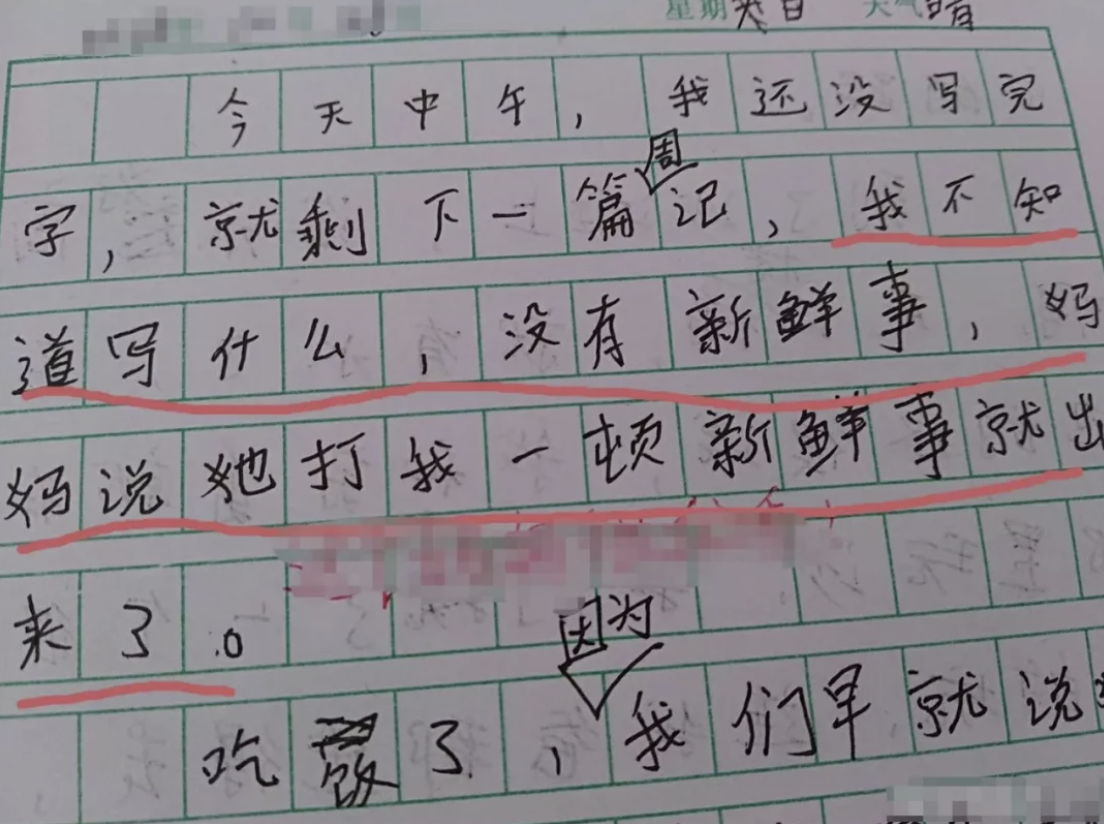 星期 天 日 天气 晴
今天中午，我还没写完
字，就剩下一篇周记，我不知
道写什么，没有新鲜事，妈
妈说她打我一顿新鲜事就出
来了。
吃饭了，因为我们早就说